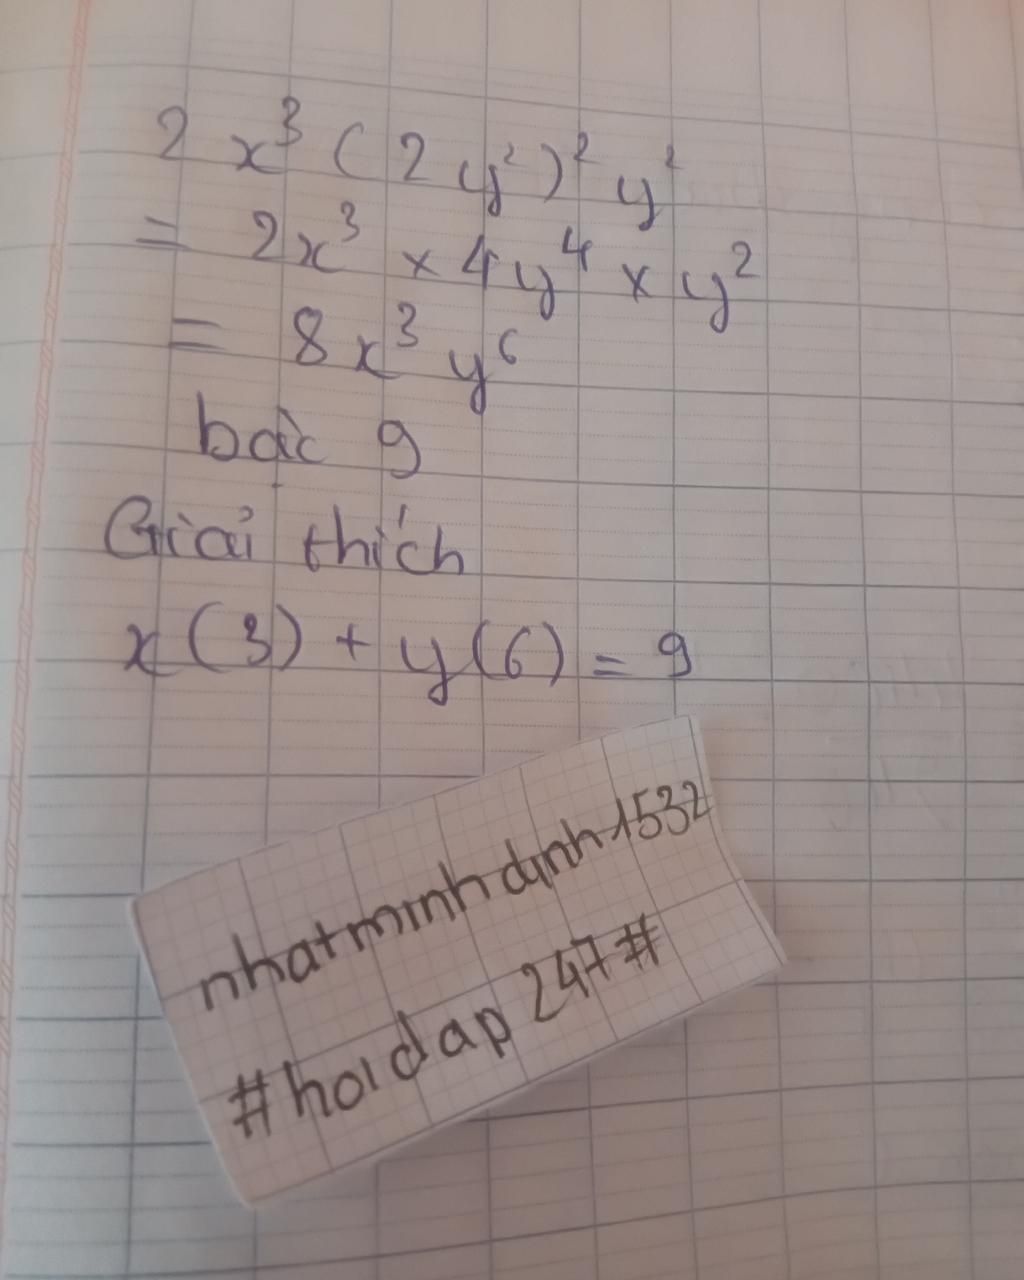 2 x³ (2 y²)² y²
= 2x³ × 4y⁴ × y²
= 8 x³ y⁶
bậc 9
Giải thích
x(3) + y(6) = 9
nhatminhdinh1532
#hoidap247#